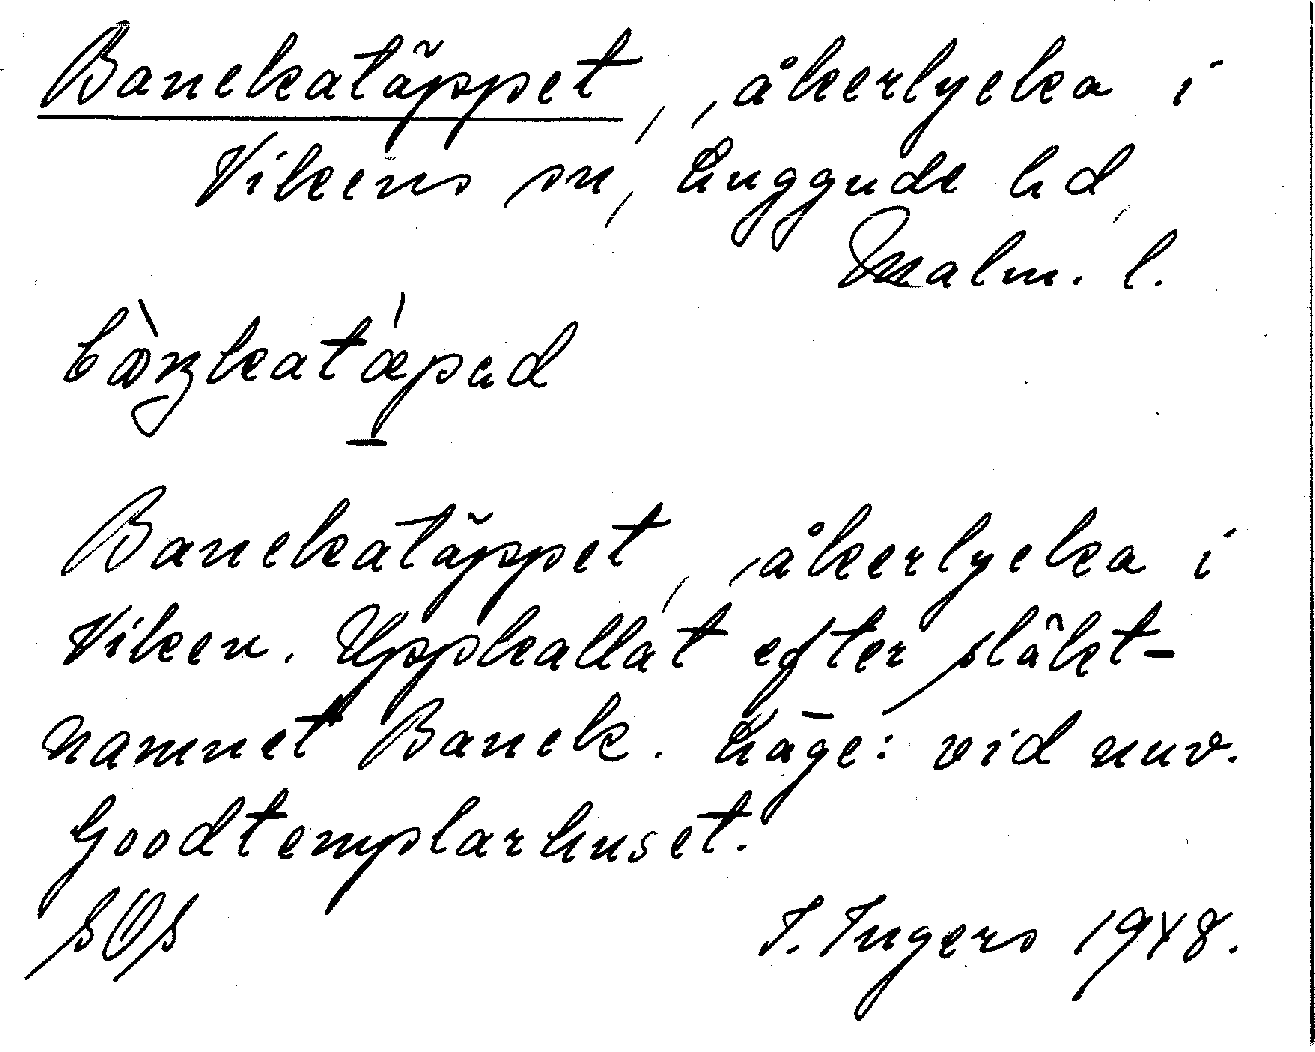 Banckatäppet, åkerlycka i
Vikens sn, Luggude hd,
Malm. l.
Banckatäppet, åkerlycka i
Viken. Uppkallat efter släkt-
namnet Banck. Läge: vid nuv.
Goodtemplarhuset.
SOS I. Ingers 1948.